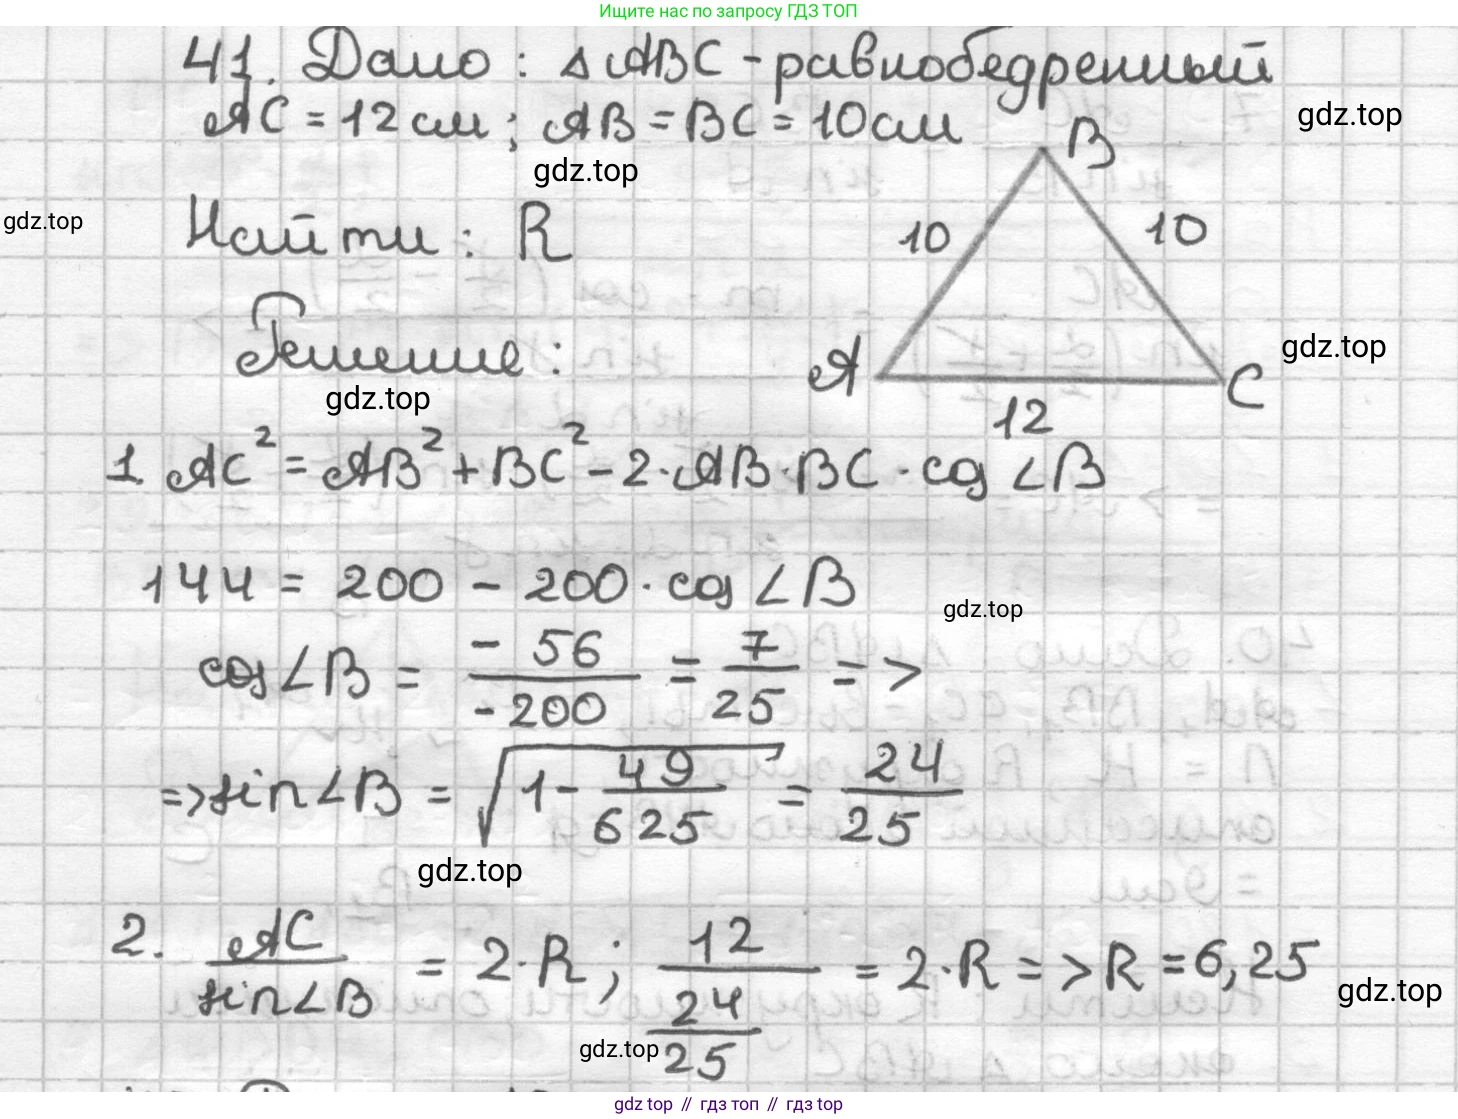 Ищите нас по запросу ГДЗ ТОП
41. Дано: △ABC - равнобедренный
AC = 12 см; AB = BC = 10 см
gdz.top
B
gdz.top
gdz.top
Найти: R
10
10
Решение:
A
C
gdz.top
gdz.top
12
1. AC² = AB² + BC² - 2·AB·BC·cos∠B
144 = 200 - 200·cos∠B
gdz.top
cos∠B = -56/-200 = 7/25 =>
=> sin∠B = √(1 - 49/625) = 24/25
gdz.top
2. AC/sin∠B = 2·R; 12/(24/25) = 2·R => R = 6,25
gdz.top
gdz.top
gdz top // гдз топ // gdz top